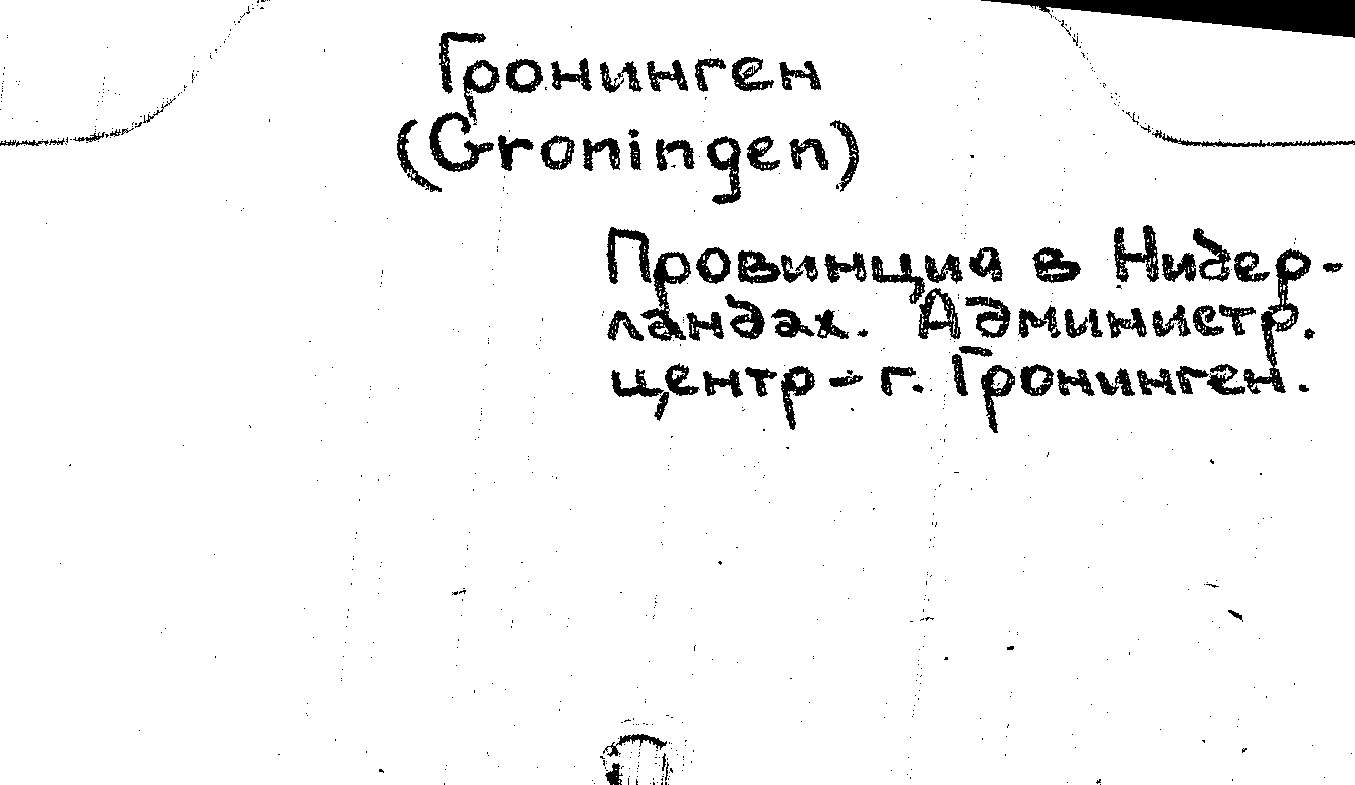 Гронинген
(Groningen)
Провинция в Нидер-
ландах. Администр.
центр - г. Гронинген.